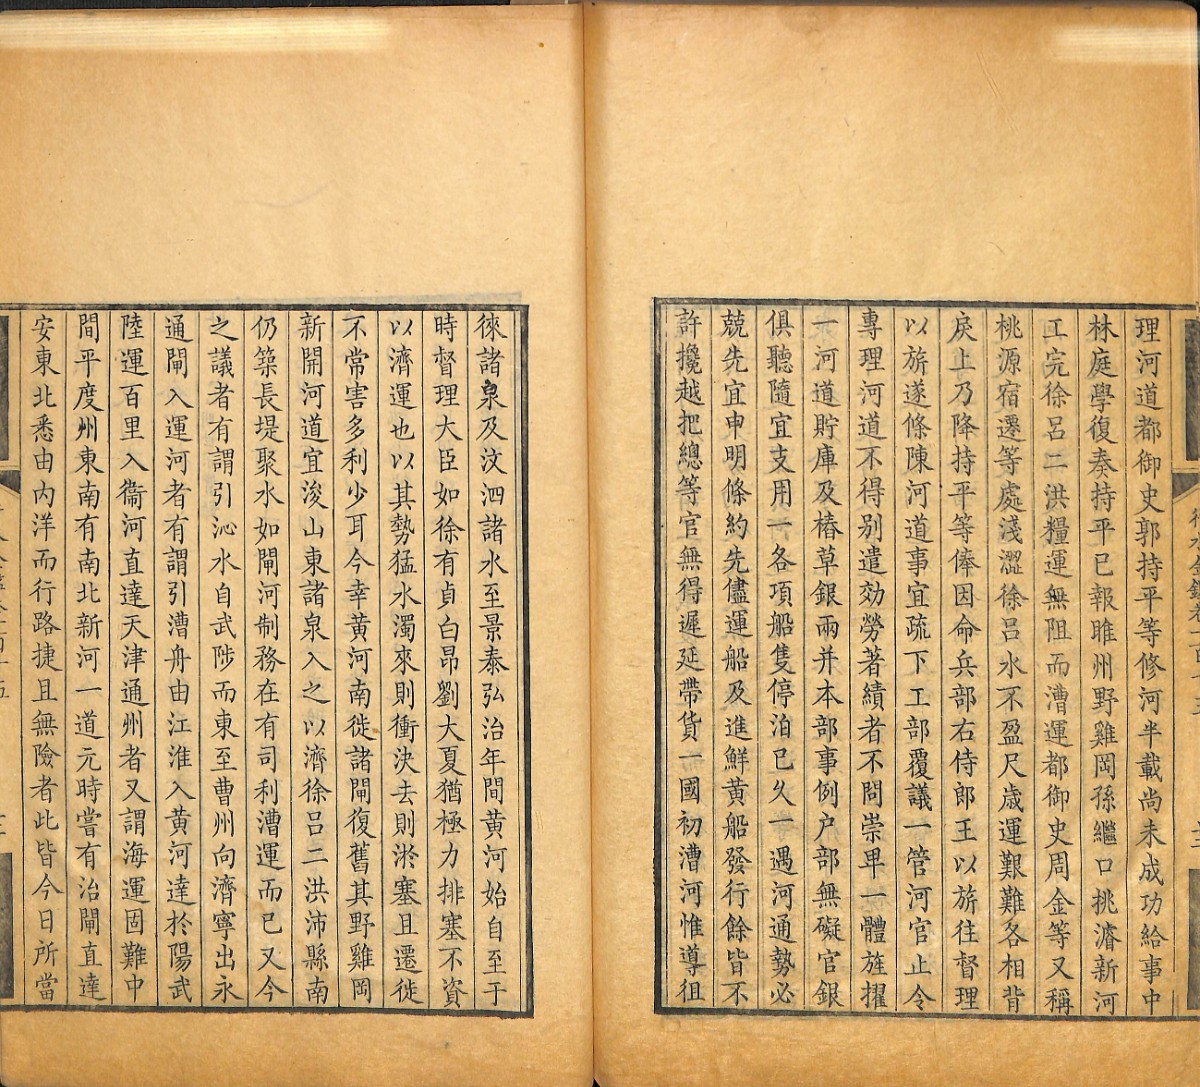 理河道都御史郭持平等修河半載尚未成功給事中
林庭學復奏持平已報睢州野雞岡孫繼口挑濬新河
工完徐呂二洪糧運無阻而漕運都御史周金等又稱
桃源宿遷等處淺澀徐呂水不盈尺歲運艱難各相背
戾上乃降持平等俸因命兵部右侍郎王以旂往督理
以旂遂條陳河道事宜疏下工部覆議一管河官止令
專理河道不得别遣効勞著績者不問崇卑一體旌擢
一河道貯庫及樁草銀兩并本部事例户部無礙官銀
俱聽隨宜支用一各項船隻停泊已久一遇河通勢必
兢先宜申明條約先儘運船及進鮮黄船發行餘皆不
許攙越把總等官無得遲延帶貨一國初漕河惟導徂
徠諸泉及汶泗諸水至景泰弘治年間黄河始自至于
時督理大臣如徐有貞白昂劉大夏猶極力排塞不資
以濟運也以其勢猛水濁來則衝決去則淤塞且遷徙
不常害多利少耳今幸黄河南徙諸閘復舊其野雞岡
新開河道宜浚山東諸泉入之以濟徐呂二洪沛縣南
仍築長堤聚水如閘河制務在有司利漕運而已又今
之議者有謂引沁水自武陟而東至曹州向濟寧出永
通閘入運河者有謂引漕舟由江淮入黄河達於陽武
陸運百里入衞河直達天津通州者又謂海運固難中
間平度州東南有南北新河一道元時嘗有治閘直達
安東北悉由内洋而行路捷且無險者此皆今日所當